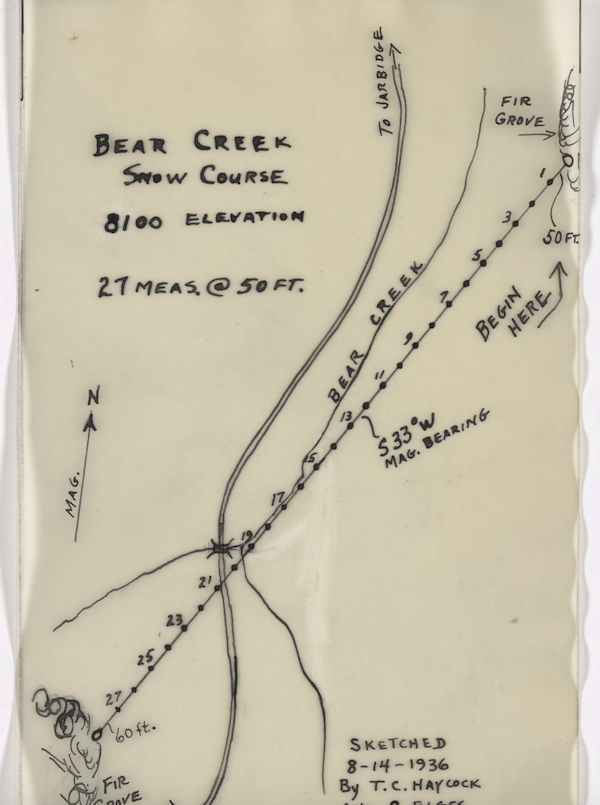 TO JARBIDGE
FIR
GROVE
BEAR CREEK
SNOW COURSE
8100 ELEVATION
27 MEAS. @ 50 FT.
1
3
50 FT.
5
7
BEGIN
HERE
BEAR CREEK
9
11
13
S33°W
MAG. BEARING
N
MAG.
15
17
19
21
23
25
27
60 ft.
FIR
GROVE
SKETCHED
8-14-1936
By T.C. HAYCOCK